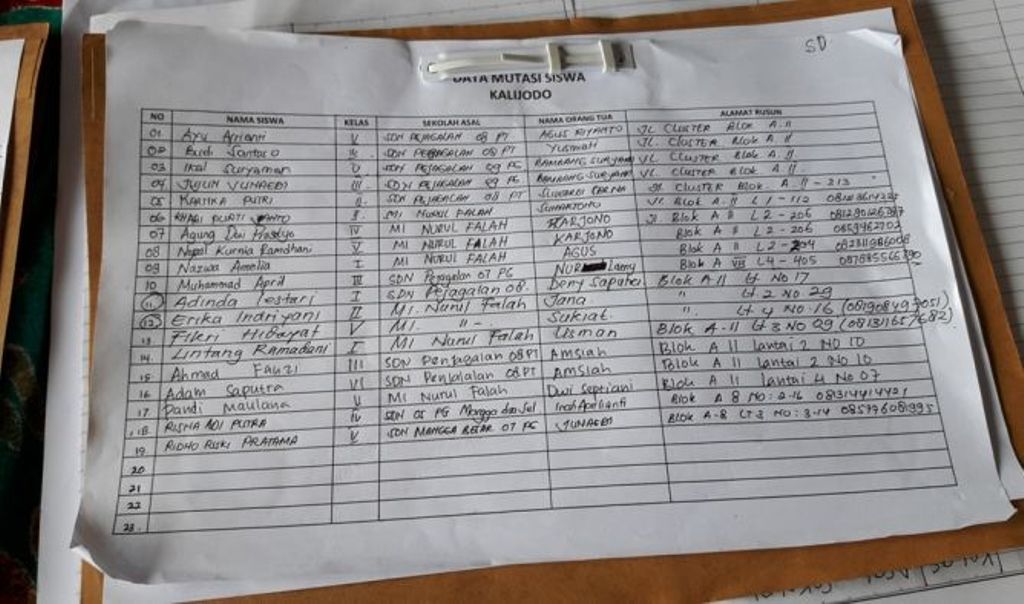 SD
DATA MUTASI SISWA
KALIJODO
NO NAMA SISWA KELAS SEKOLAH ASAL NAMA ORANG TUA ALAMAT RUSUN
01 Ayu Aprianti V SDN PEJAGALAN 08 PT AGUS RIYANTO JL CLUSTER BLOK A.11
02 Budi Santoso SDN PEJAGALAN 08 PT YUSTINAH JL CLUSTER Blok A 11
03 Ikal Suryaman V SDN PEJAGALAN 09 PG BAMBANG SURYAMAN JL CLUSTER Blok A 11
04 JUJUN JUNAEDI III SDN PEJAGALAN 09 PG BAMBANG SURYAMAN JL CLUSTER Blok A 11
05 KARTIKA PUTRI II SDN PEJAGALAN 08 PT JL CLUSTER BLOK. A. 11 - 213
06 II MI NURUL FALAH SUHARTONO JL BLOK A. 11 L 1 - 112
07 Agung Dwi IV MI NURUL FALAH HARJONO JL Blok A 11 L 2 - 206
08 Kurnia Ramdhani V MI NURUL FALAH HARJONO Blok A 11 L 2 - 206
09 Nazwa Amelia I MI NURUL FALAH AGUS Blok A 11 L 2 - 204
10 Muhammad April III SDN Pejagalan 07 PG NUR Blok A L4 - 405
11 Adinda Lestari I SDN Pejagalan 08. Deny Saputra Blok A 11 Lt. No 17
12 Erika Indriyani II MI. Nurul Falah Jana " Lt. 2 No 29
13 Fikri Hidayat V MI. " - Sukiat. ". Lt. 4 No. 16 (081908497051)
14. Lintang Ramadani I MI Nurul Falah Usman Blok A-11 Lt 3 NO 29 (081311657682)
15 Ahmad Fauzi III SDN Penjagalan 08 PT Amsiah Blok A 11 Lantai 2 NO 10
16 Adam Saputra VI SDN Penjalalan 08 PT Amsiah Blok A 11 Lantai 2 No 10
17 Dandi Maulana V MI Nurul Falah Dwi Septiani Blok A 11 Lantai 4 No 07
18 RISNA ADI PUTRA IV SDN 05 PG Mangga dua Sel Blok A 8 NO : 2-16
19 RIDHO RISKI PRATAMA V SDN MANGGA BESAR 07 PG JUNAEDI Blok A-8 LT 3 NO : 3-14 085776081995
20
21
22
23.